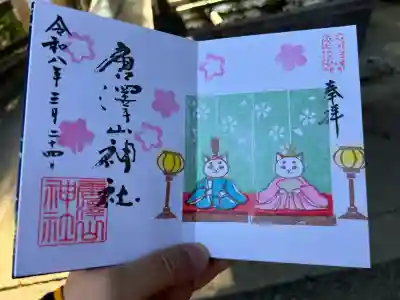 奉拝
唐澤山神社
令和八年三月二十四日
唐澤山
神社